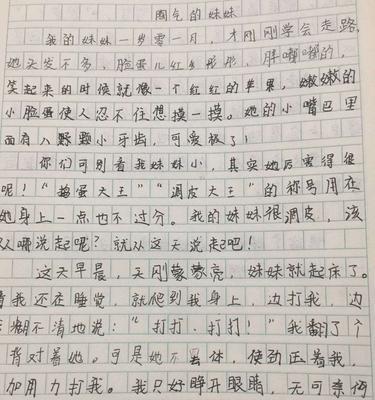 淘气的妹妹
我的妹妹一岁零一月,才刚刚学会走路,
她头发不多,脸蛋儿红彤彤,胖嘟嘟的,
笑起来的时候就像一个红红的苹果,嫩嫩的
小脸蛋使人忍不住想摸一摸。她的小嘴巴里
面有八颗小牙齿,可爱极了!
你们可别看我妹妹小,其实她厉害得很
呢!“捣蛋大王”“调皮大王”的称号用在
她身上一点也不过分。我的妹妹很调皮,该
从哪说起呢?就从这天说起吧!
这天早晨,天刚蒙蒙亮,妹妹就起床了。
看我还在睡觉,就爬到我身上,边打我,边
糊不清地说:“打打,打打!”我翻了个
背对着她。可是她不体,使劲压着我,
加用力打我。我只好睁开眼睛,无可奈何